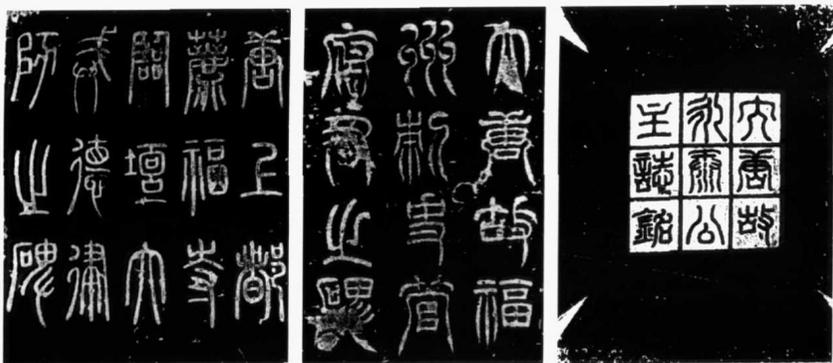 唐上都
薦福寺
臨壇大
戒德律
師之碑
大唐故福
州刺史管
府君之碑
大唐故
永泰公
主誌銘